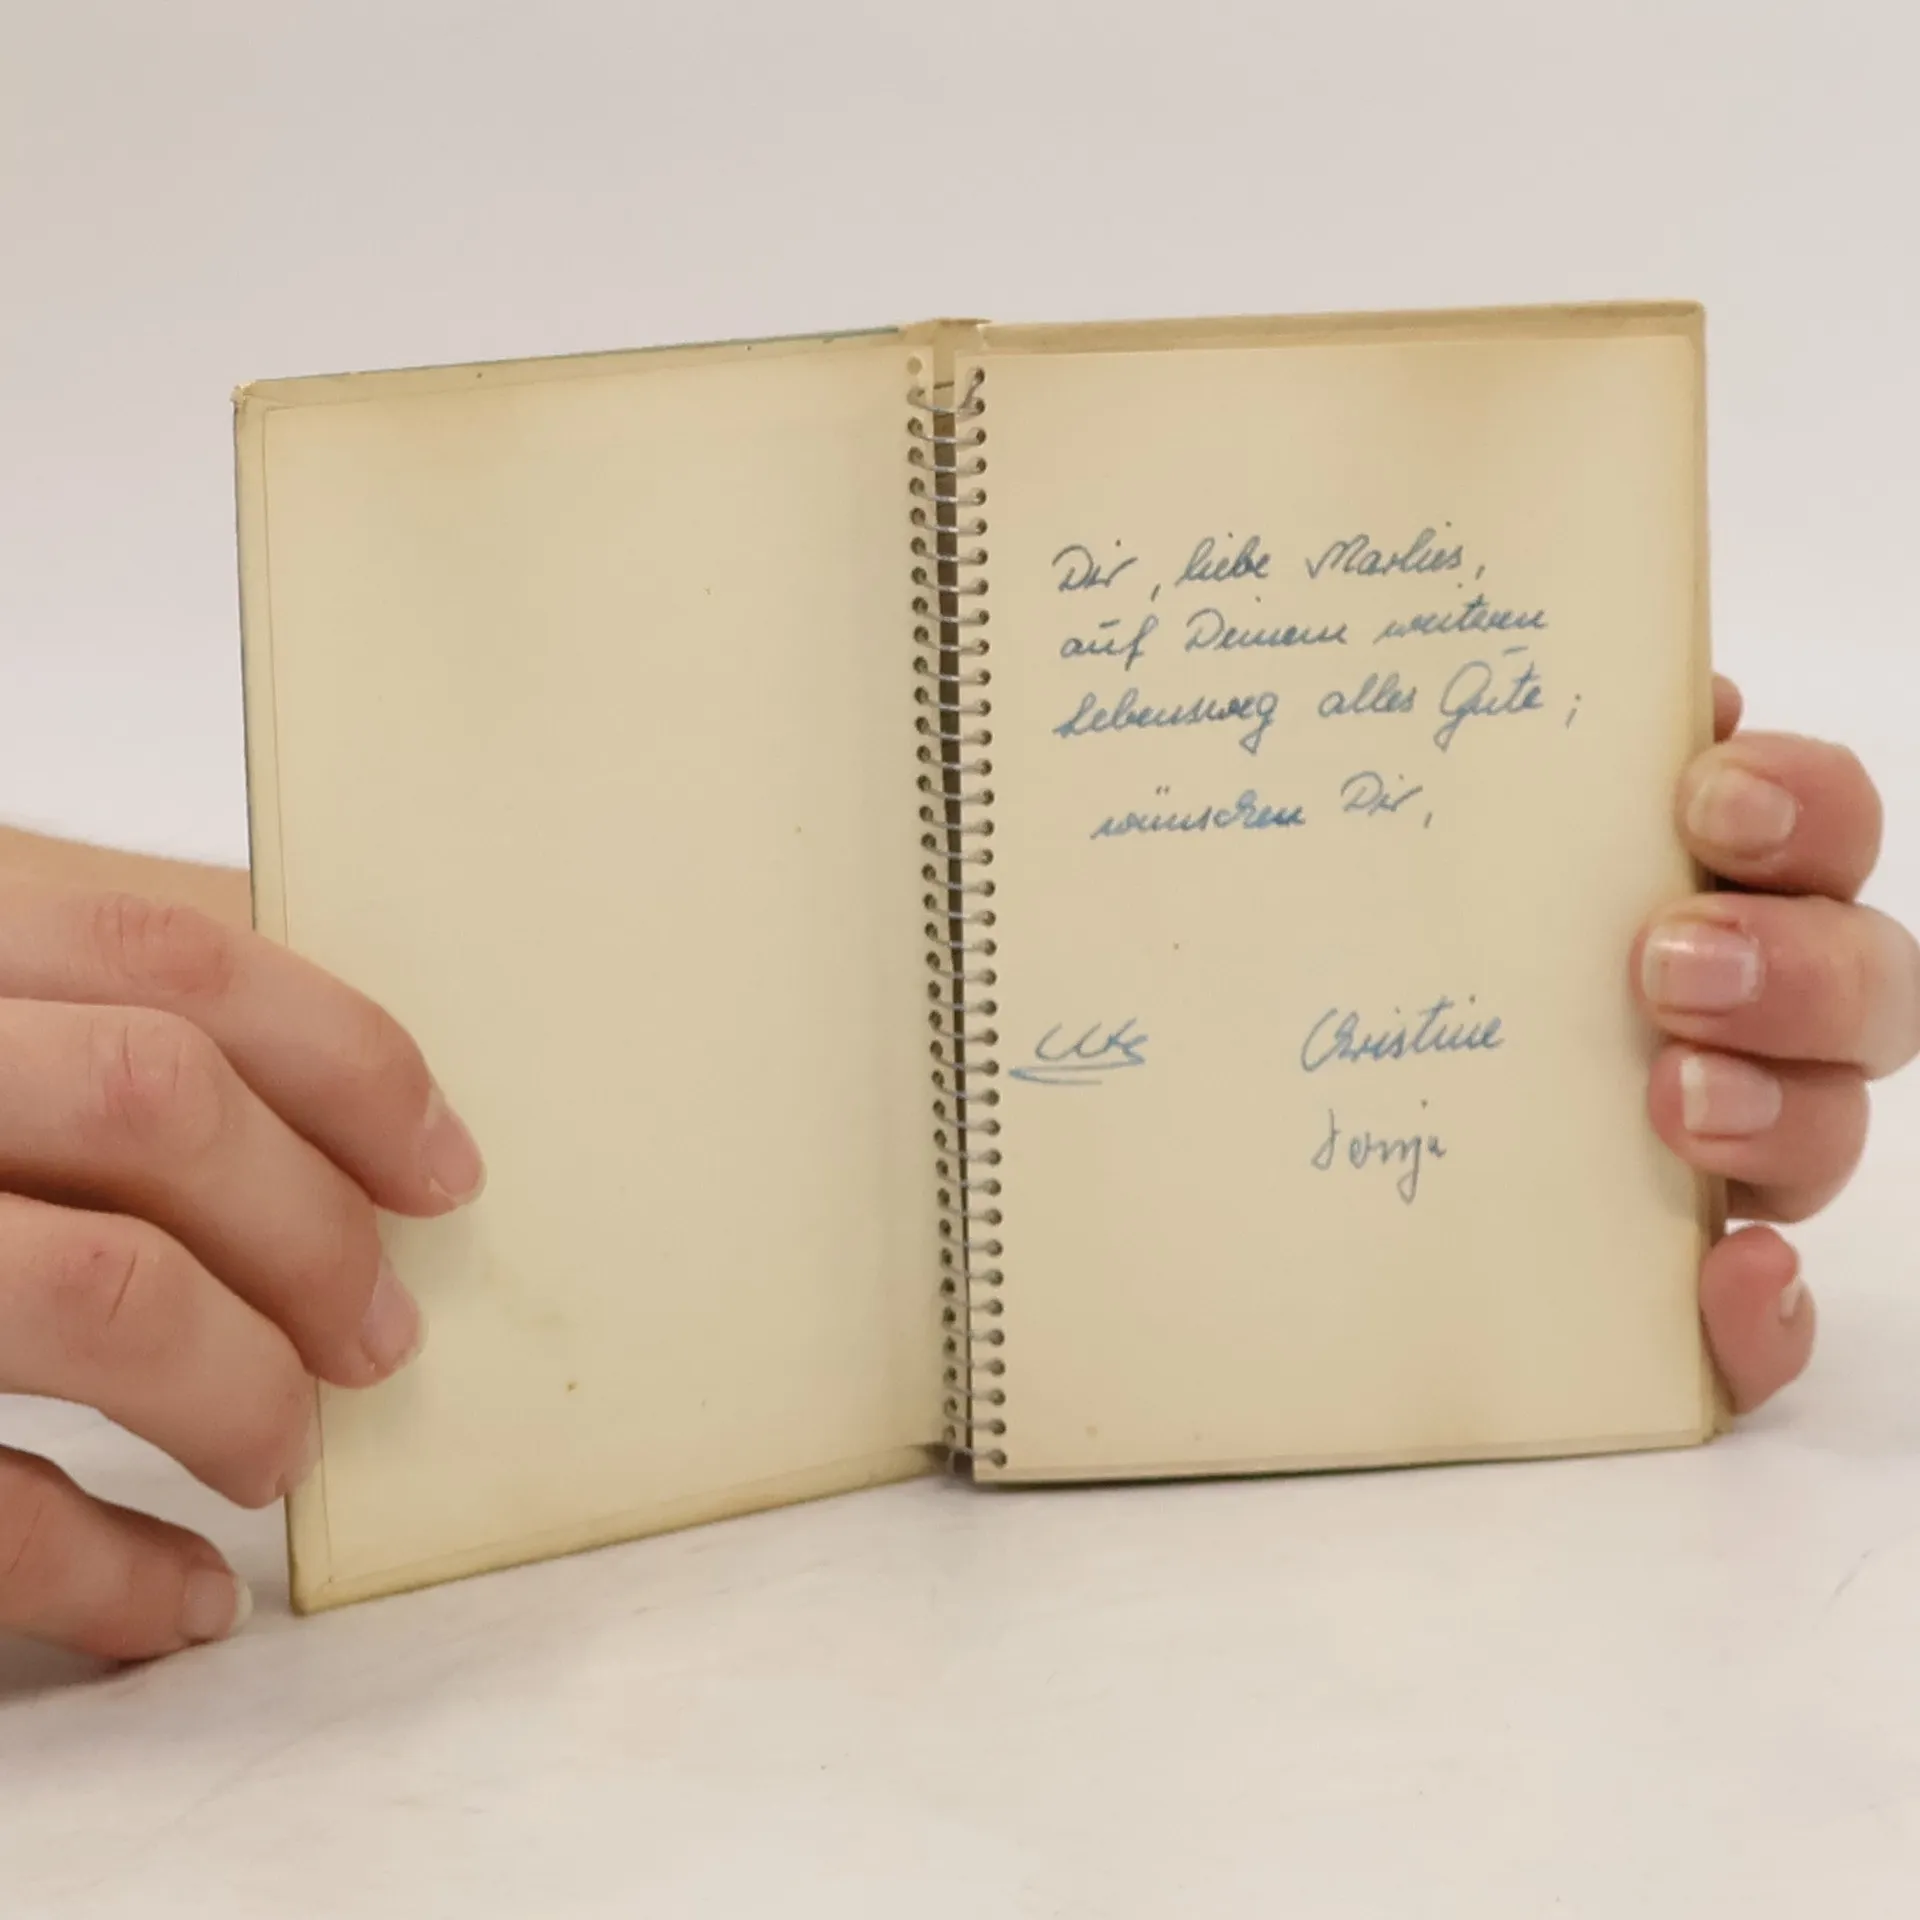 Dir, liebe Marlies,
auf Deinem weiteren
Lebensweg alles Gute;
wünschen Dir,
Ute Christine
Sonja